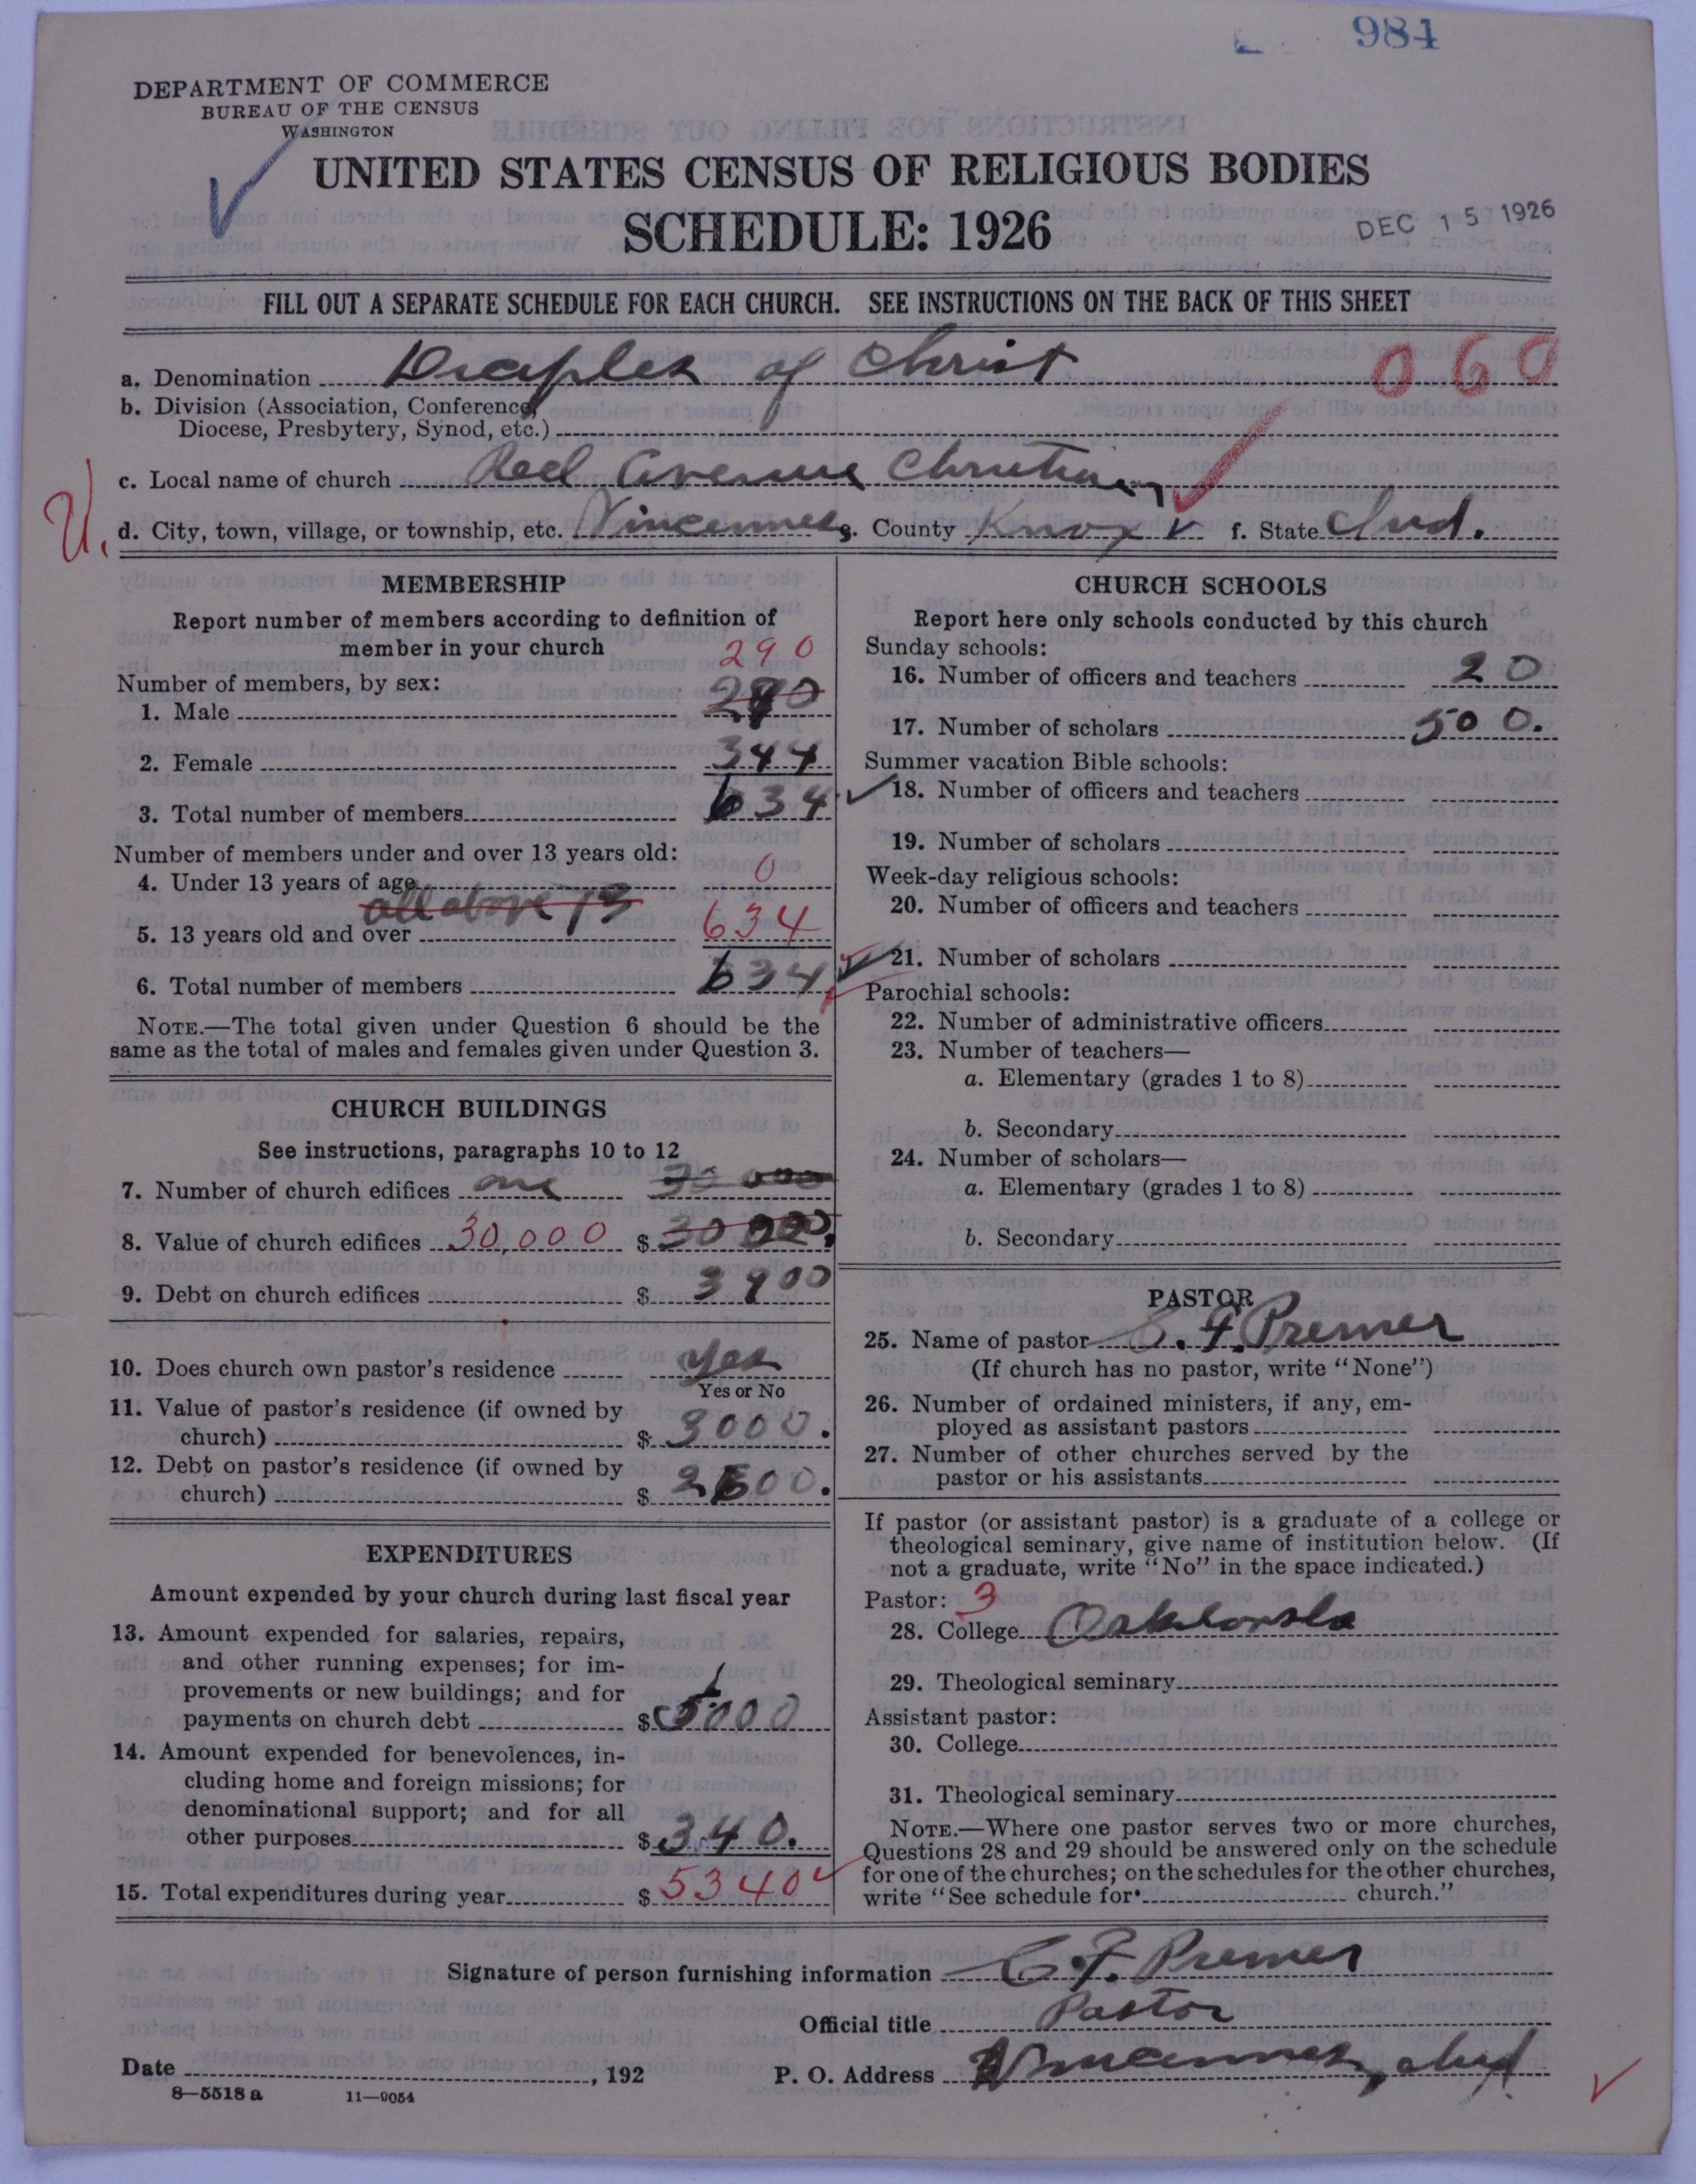 984
DEPARTMENT OF COMMERCE
BUREAU OF THE CENSUS
WASHINGTON
UNITED STATES CENSUS OF RELIGIOUS BODIES
SCHEDULE: 1926
DEC 15 1926
FILL OUT A SEPARATE SCHEDULE FOR EACH CHURCH. SEE INSTRUCTIONS ON THE BACK OF THIS SHEET
a. Denomination Disciples of Christ 060
b. Division (Association, Conference,
Diocese, Presbytery, Synod, etc.)
c. Local name of church Reel Avenue Christian
U. d. City, town, village, or township, etc. Vincennes e. County Knox f. State Ind.
MEMBERSHIP
Report number of members according to definition of
member in your church
290
Number of members, by sex:
1. Male
2. Female 344
3. Total number of members 634
Number of members under and over 13 years old:
4. Under 13 years of age 0
all above 13
5. 13 years old and over 634
6. Total number of members 634
NOTE.—The total given under Question 6 should be the
same as the total of males and females given under Question 3.
CHURCH BUILDINGS
See instructions, paragraphs 10 to 12
7. Number of church edifices one 30 000
8. Value of church edifices 30,000 $ 30 000.
9. Debt on church edifices $ 3900
10. Does church own pastor's residence yes
Yes or No
11. Value of pastor's residence (if owned by
church) $ 3000.
12. Debt on pastor's residence (if owned by
church) $
EXPENDITURES
Amount expended by your church during last fiscal year
13. Amount expended for salaries, repairs,
and other running expenses; for im-
provements or new buildings; and for
payments on church debt $ 5000
14. Amount expended for benevolences, in-
cluding home and foreign missions; for
denominational support; and for all
other purposes $ 340.
15. Total expenditures during year $ 5340
CHURCH SCHOOLS
Report here only schools conducted by this church
Sunday schools:
16. Number of officers and teachers 20
17. Number of scholars 500.
Summer vacation Bible schools:
18. Number of officers and teachers
19. Number of scholars
Week-day religious schools:
20. Number of officers and teachers
21. Number of scholars
Parochial schools:
22. Number of administrative officers
23. Number of teachers—
a. Elementary (grades 1 to 8)
b. Secondary
24. Number of scholars—
a. Elementary (grades 1 to 8)
b. Secondary
PASTOR
25. Name of pastor C. F. Premer
(If church has no pastor, write "None")
26. Number of ordained ministers, if any, em-
ployed as assistant pastors
27. Number of other churches served by the
pastor or his assistants
If pastor (or assistant pastor) is a graduate of a college or
theological seminary, give name of institution below. (If
not a graduate, write "No" in the space indicated.)
Pastor: 3
28. College Oskloosla
29. Theological seminary
Assistant pastor:
30. College
31. Theological seminary
NOTE.—Where one pastor serves two or more churches,
Questions 28 and 29 should be answered only on the schedule
for one of the churches; on the schedules for the other churches,
write "See schedule for church."
Signature of person furnishing information C. F. Premer
Official title Pastor
Date , 192 P. O. Address Vincennes, Ind
8—5518 a 11—9054